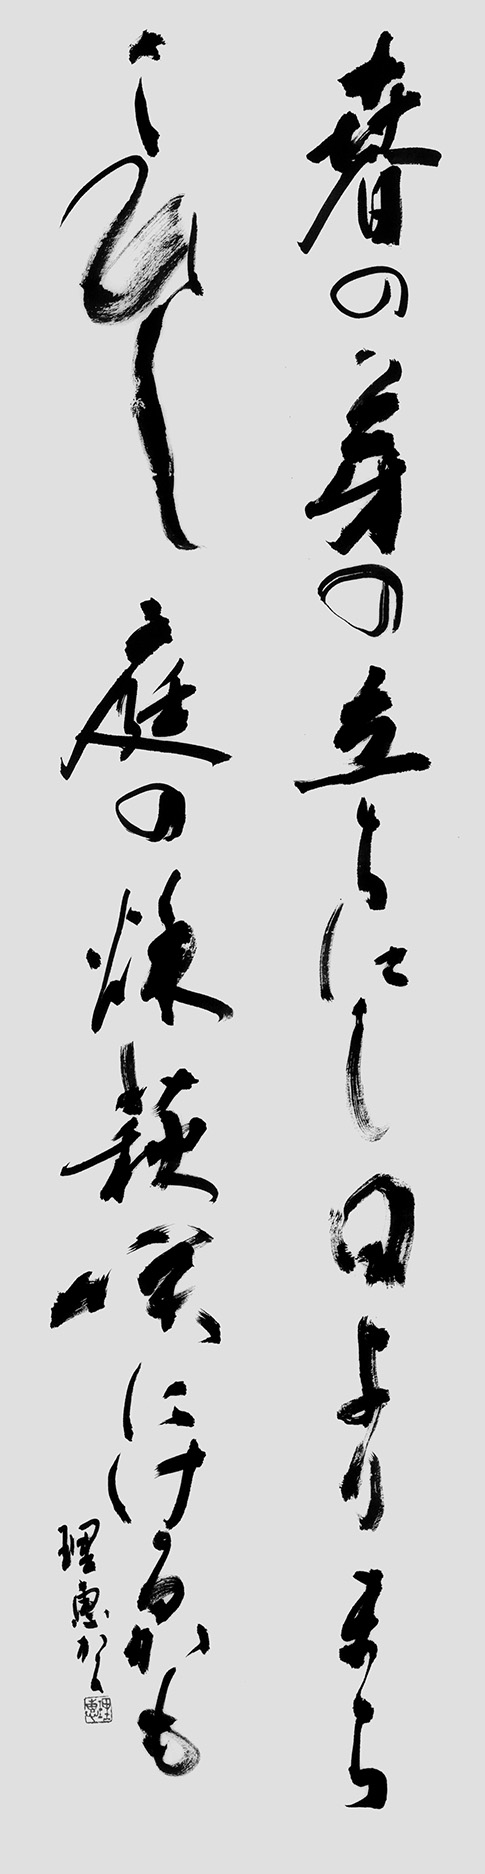 春の芽の立ちにし日よりまち
こひし庭の秋萩咲にけるかも
理恵かく
理恵